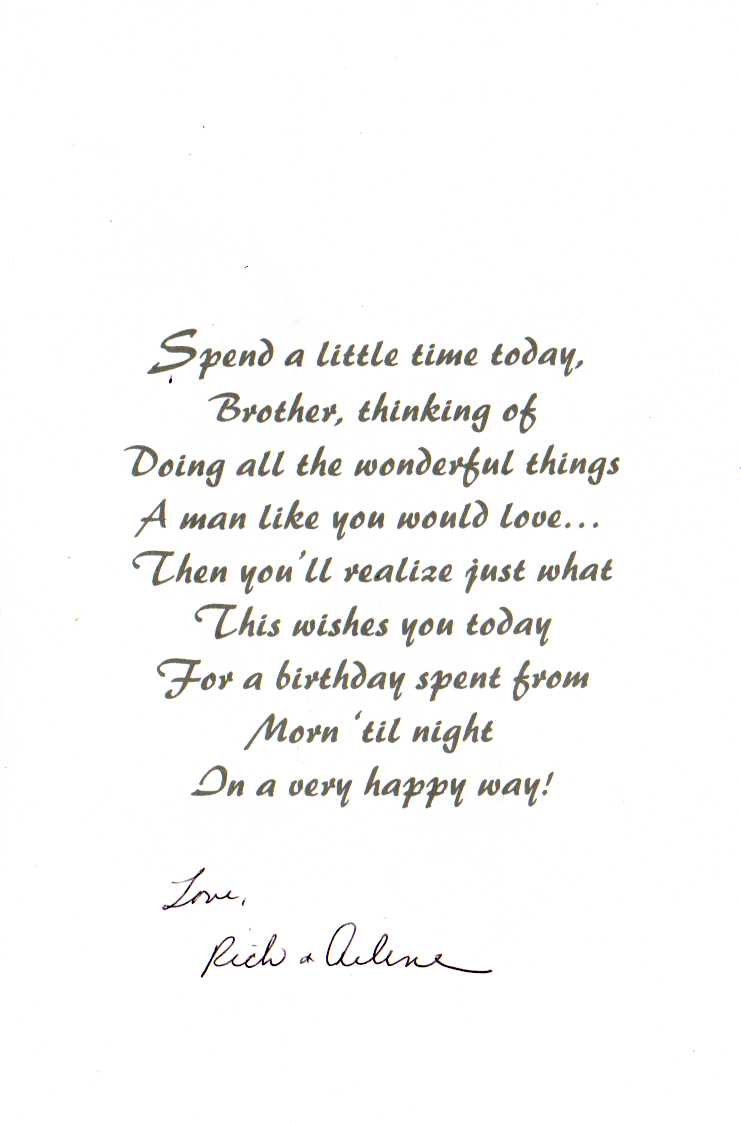 Spend a little time today,
Brother, thinking of
Doing all the wonderful things
A man like you would love...
Then you'll realize just what
This wishes you today
For a birthday spent from
Morn 'til night
In a very happy way!
Love,
Rich & Arlene